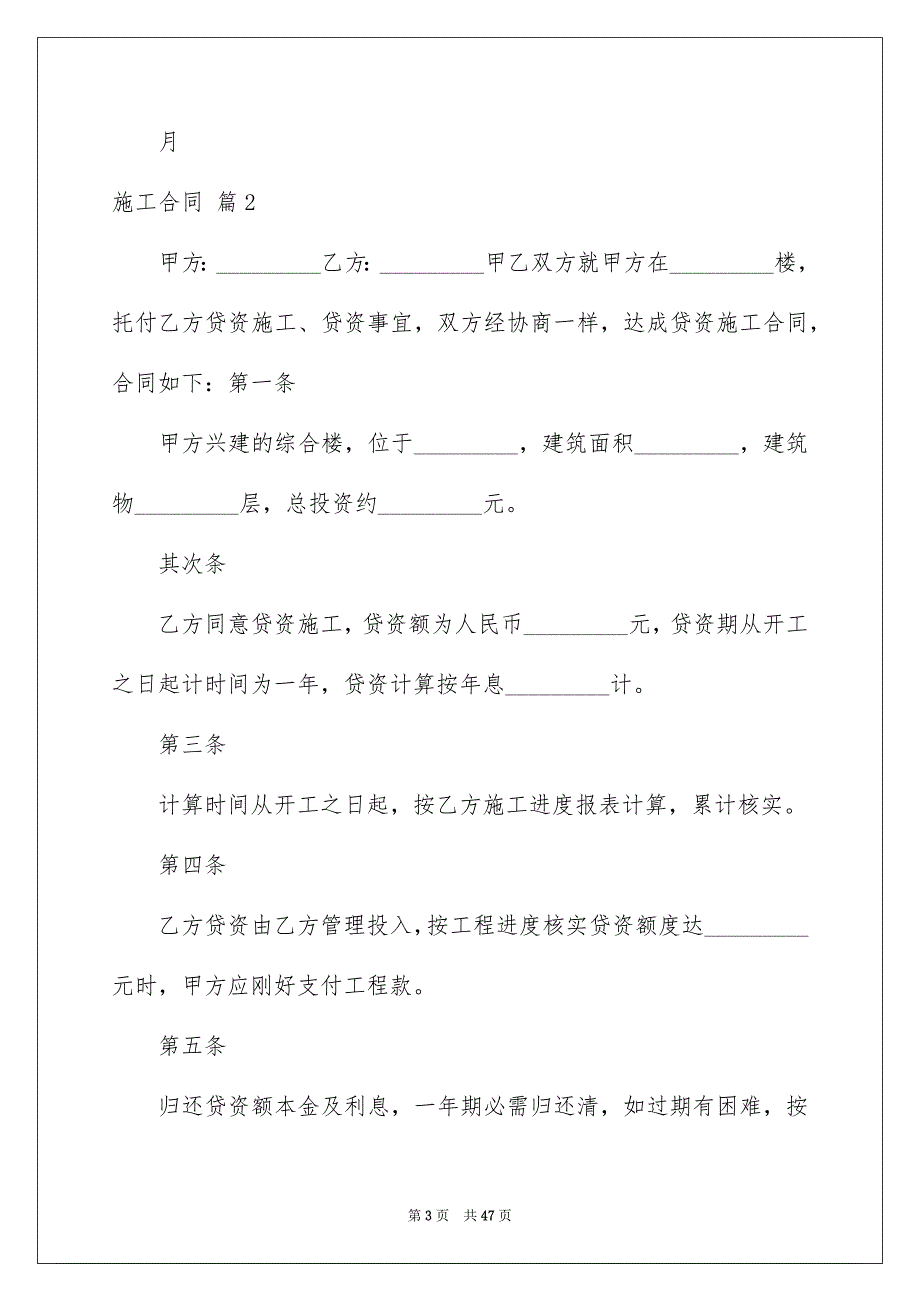 月
施工合同 篇2
甲方：_________乙方：_________甲乙双方就甲方在_________楼，
托付乙方贷资施工、贷资事宜，双方经协商一样，达成贷资施工合同，
合同如下：第一条
甲方兴建的综合楼，位于_________，建筑面积_________，建筑
物_________层，总投资约_________元。
其次条
乙方同意贷资施工，贷资额为人民币_________元，贷资期从开工
之日起计时间为一年，贷资计算按年息_________计。
第三条
计算时间从开工之日起，按乙方施工进度报表计算，累计核实。
第四条
乙方贷资由乙方管理投入，按工程进度核实贷资额度达_________
元时，甲方应刚好支付工程款。
第五条
归还贷资额本金及利息，一年期必需归还清，如过期有困难，按
第3页 共47页